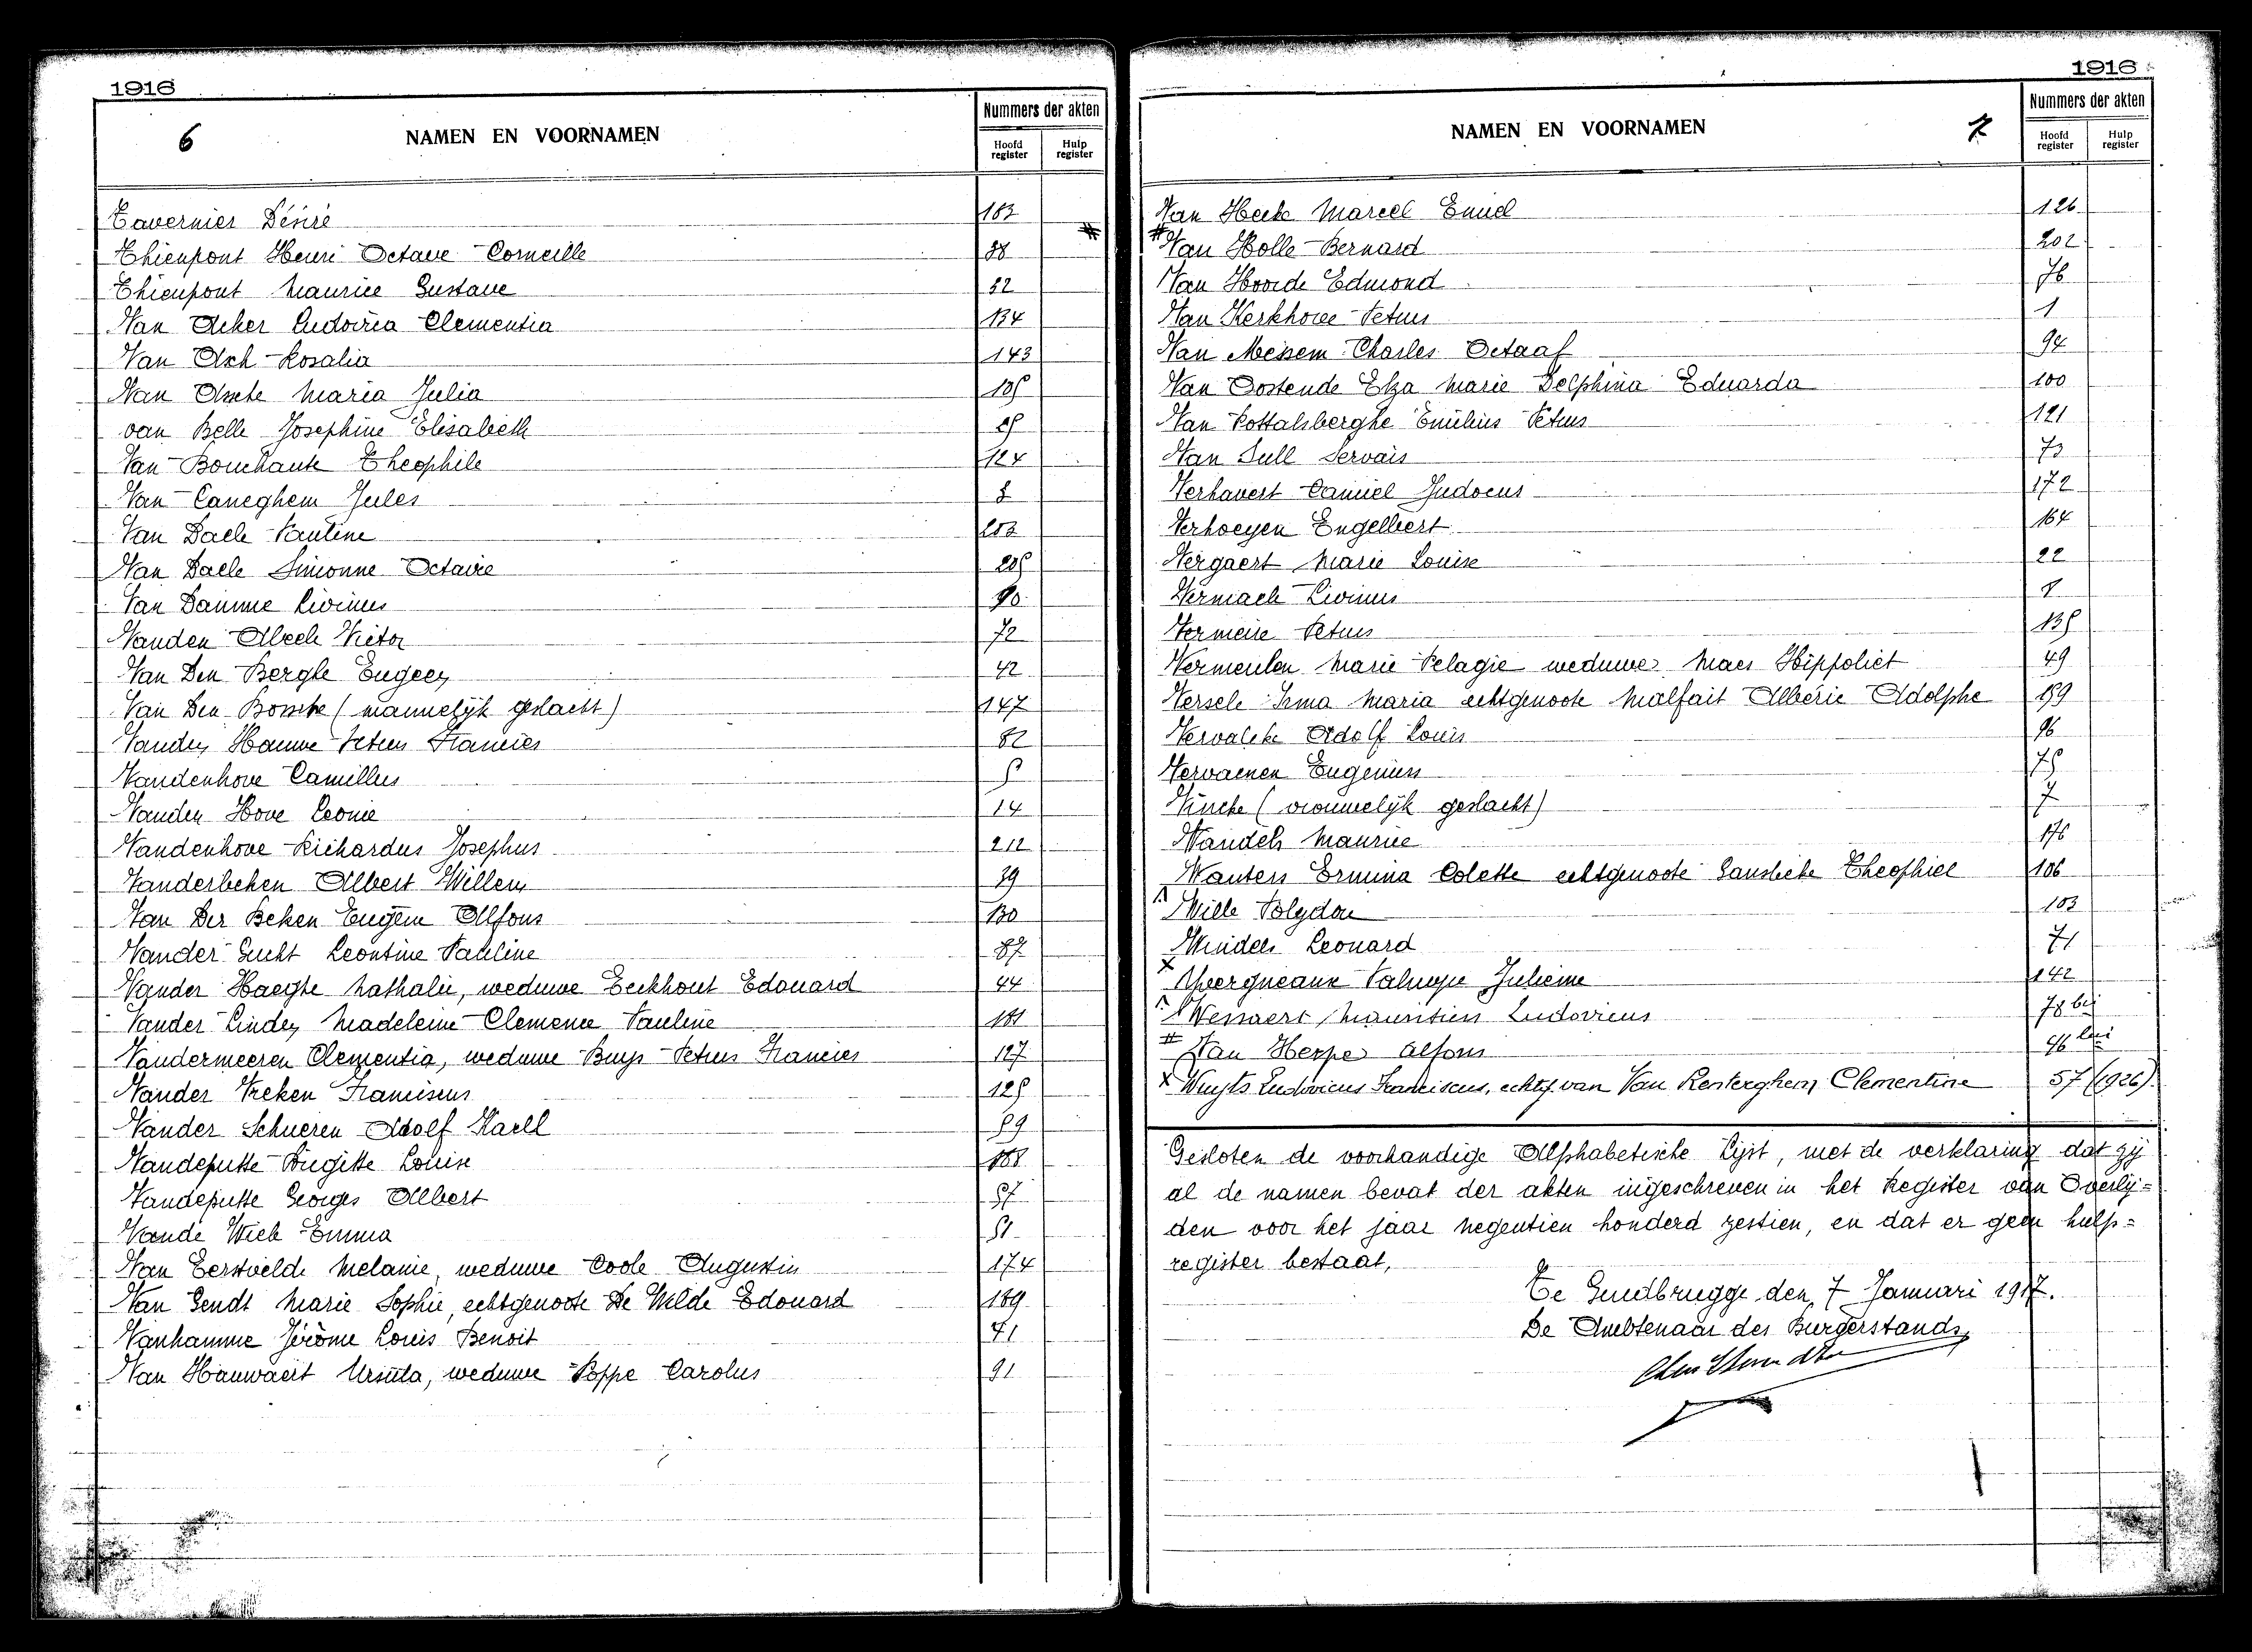 1916
6
NAMEN EN VOORNAMEN
Nummers der akten
Hoofd register
Hulp register
Tavernier Désiré 183
Thienpont Henri Octave Corneille 38
Thienpont Maurice Gustave 52
Van Acker Ludovica Clementia 134
Van Ach Rosalia 143
Van Assche Maria Julia
van Belle Josephine Elisabeth
Van Bouchaute Theophile 124
Van Caneghem Jules
Van Daele Pauline 203
Van Daele Simonne Octavie
Van Damme Livinus 90
Vanden Abeele Victor 72
Van Den Berghe Eugeen 42
Van Den Bossche (mannelijk geslacht) 147
Vanden Hauwe Petrus Francies 82
Vandenhove Camillus
Vanden Hove Leonie 14
Vandenhove Richardus Josephus 212
Vanderbeken Albert Willem 39
Van Der Beken Eugeen Alfons 130
Vander Gucht Leontine Pauline 87
Vander Haeghe Nathalie, weduwe Eeckhout Edouard 44
Vander Linden Madeleine Clemence Pauline 181
Vandermeeren Clementia, weduwe Buys Petrus Francies 127
Vander Vreken Franciscus 125
Vander Schueren Adolf Karel 59
Vandeputte Brigitte Louise 188
Vandeputte Georges Albert 57
Vande Wiele Emma 51
Van Eerstvelde Melanie, weduwe Coole Augustin 174
Van Gendt Marie Sophie, echtgenoote De Wilde Edouard 189
Vanhamme Jérôme Louis Benoit 41
Van Hauwaert Ursula, weduwe Poppe Carolus 91
1916
NAMEN EN VOORNAMEN
7
Nummers der akten
Hoofd register
Hulp register
Van Hecke Marcel Emiel 126
Van Holle Bernard 202
Van Hoorde Edmond 76
Van Kerkhove Petrus 1
Van Messem Charles Octaaf 94
Van Oostende Elza Marie Delphina Eduarda 100
Van Pottelsberghe Emilius Petrus 121
Van Tull Servais 73
Verhavert Camiel Judocus 172
Verhoeyen Engelbert 164
Vergaert Marie Louise 22
Vermaele Livinus
Vermeire Petrus 135
Vermeulen Marie Pelagie weduwe Maes Hippoliet 49
Versele Irma Maria echtgenoote Malfait Albéric Adolphe 159
Vervalcke Adolf Louis 96
Vervaenen Eugenius 75
Vincke (vrouwelijk geslacht) 7
Wandels Maurice 176
Wauters Ermina Colette echtgenoote Theophiel 106
Wille Polydor 103
Windels Leonard 71
Julienne 142
Wessaert Mauritius Ludovicus 78 bis
Van Herpe Alfons 46 bis
Wuyts Ludovicus Franciscus, echtg. van Van Renterghem Clementine 57 (1926).
Gesloten de voorhandige Alphabetische Lijst, met de verklaring dat zij
al de namen bevat der akten ingeschreven in het Register van Overlij=
den voor het jaar negentien honderd zestien, en dat er geen hulp=
register bestaat,
Te Gendbrugge den 7 Januari 1917.
De Ambtenaar des Burgerstands,